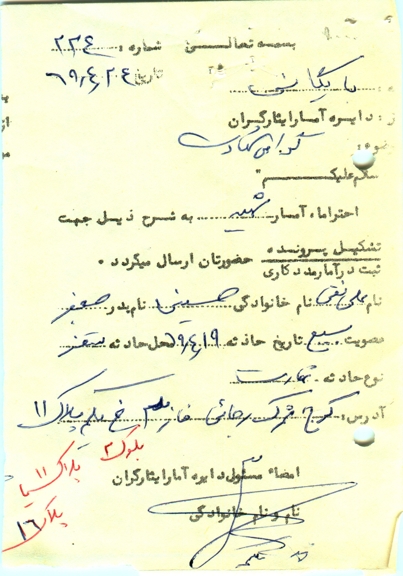 بسمه تعالی شماره: ۲۳۴
تاریخ ۶۹/۴/۲۴
به: بایگانی
از: دایره آمار ایثارگران
موضوع: گواهی شهادت
سلام علیکم
احتراما، آمار شهید به شرح ذیل جهت
تشکیل پرونده حضورتان ارسال میگردد.
ثبت در آمار مددکاری
نام علی نقی نام خانوادگی حسینی نام پدر صفر
عضویت بسیج تاریخ حادثه ۶۹/۴/۱۹ محل حادثه سقز
نوع حادثه شهادت
آدرس: کرج شهرک رجائی فاز پلاک ۱۱
بلوک ۲
پلاک ۱۱
پلاک ۱۶
امضاء مسئول دایره آمار ایثارگران
نام و نام خانوادگی